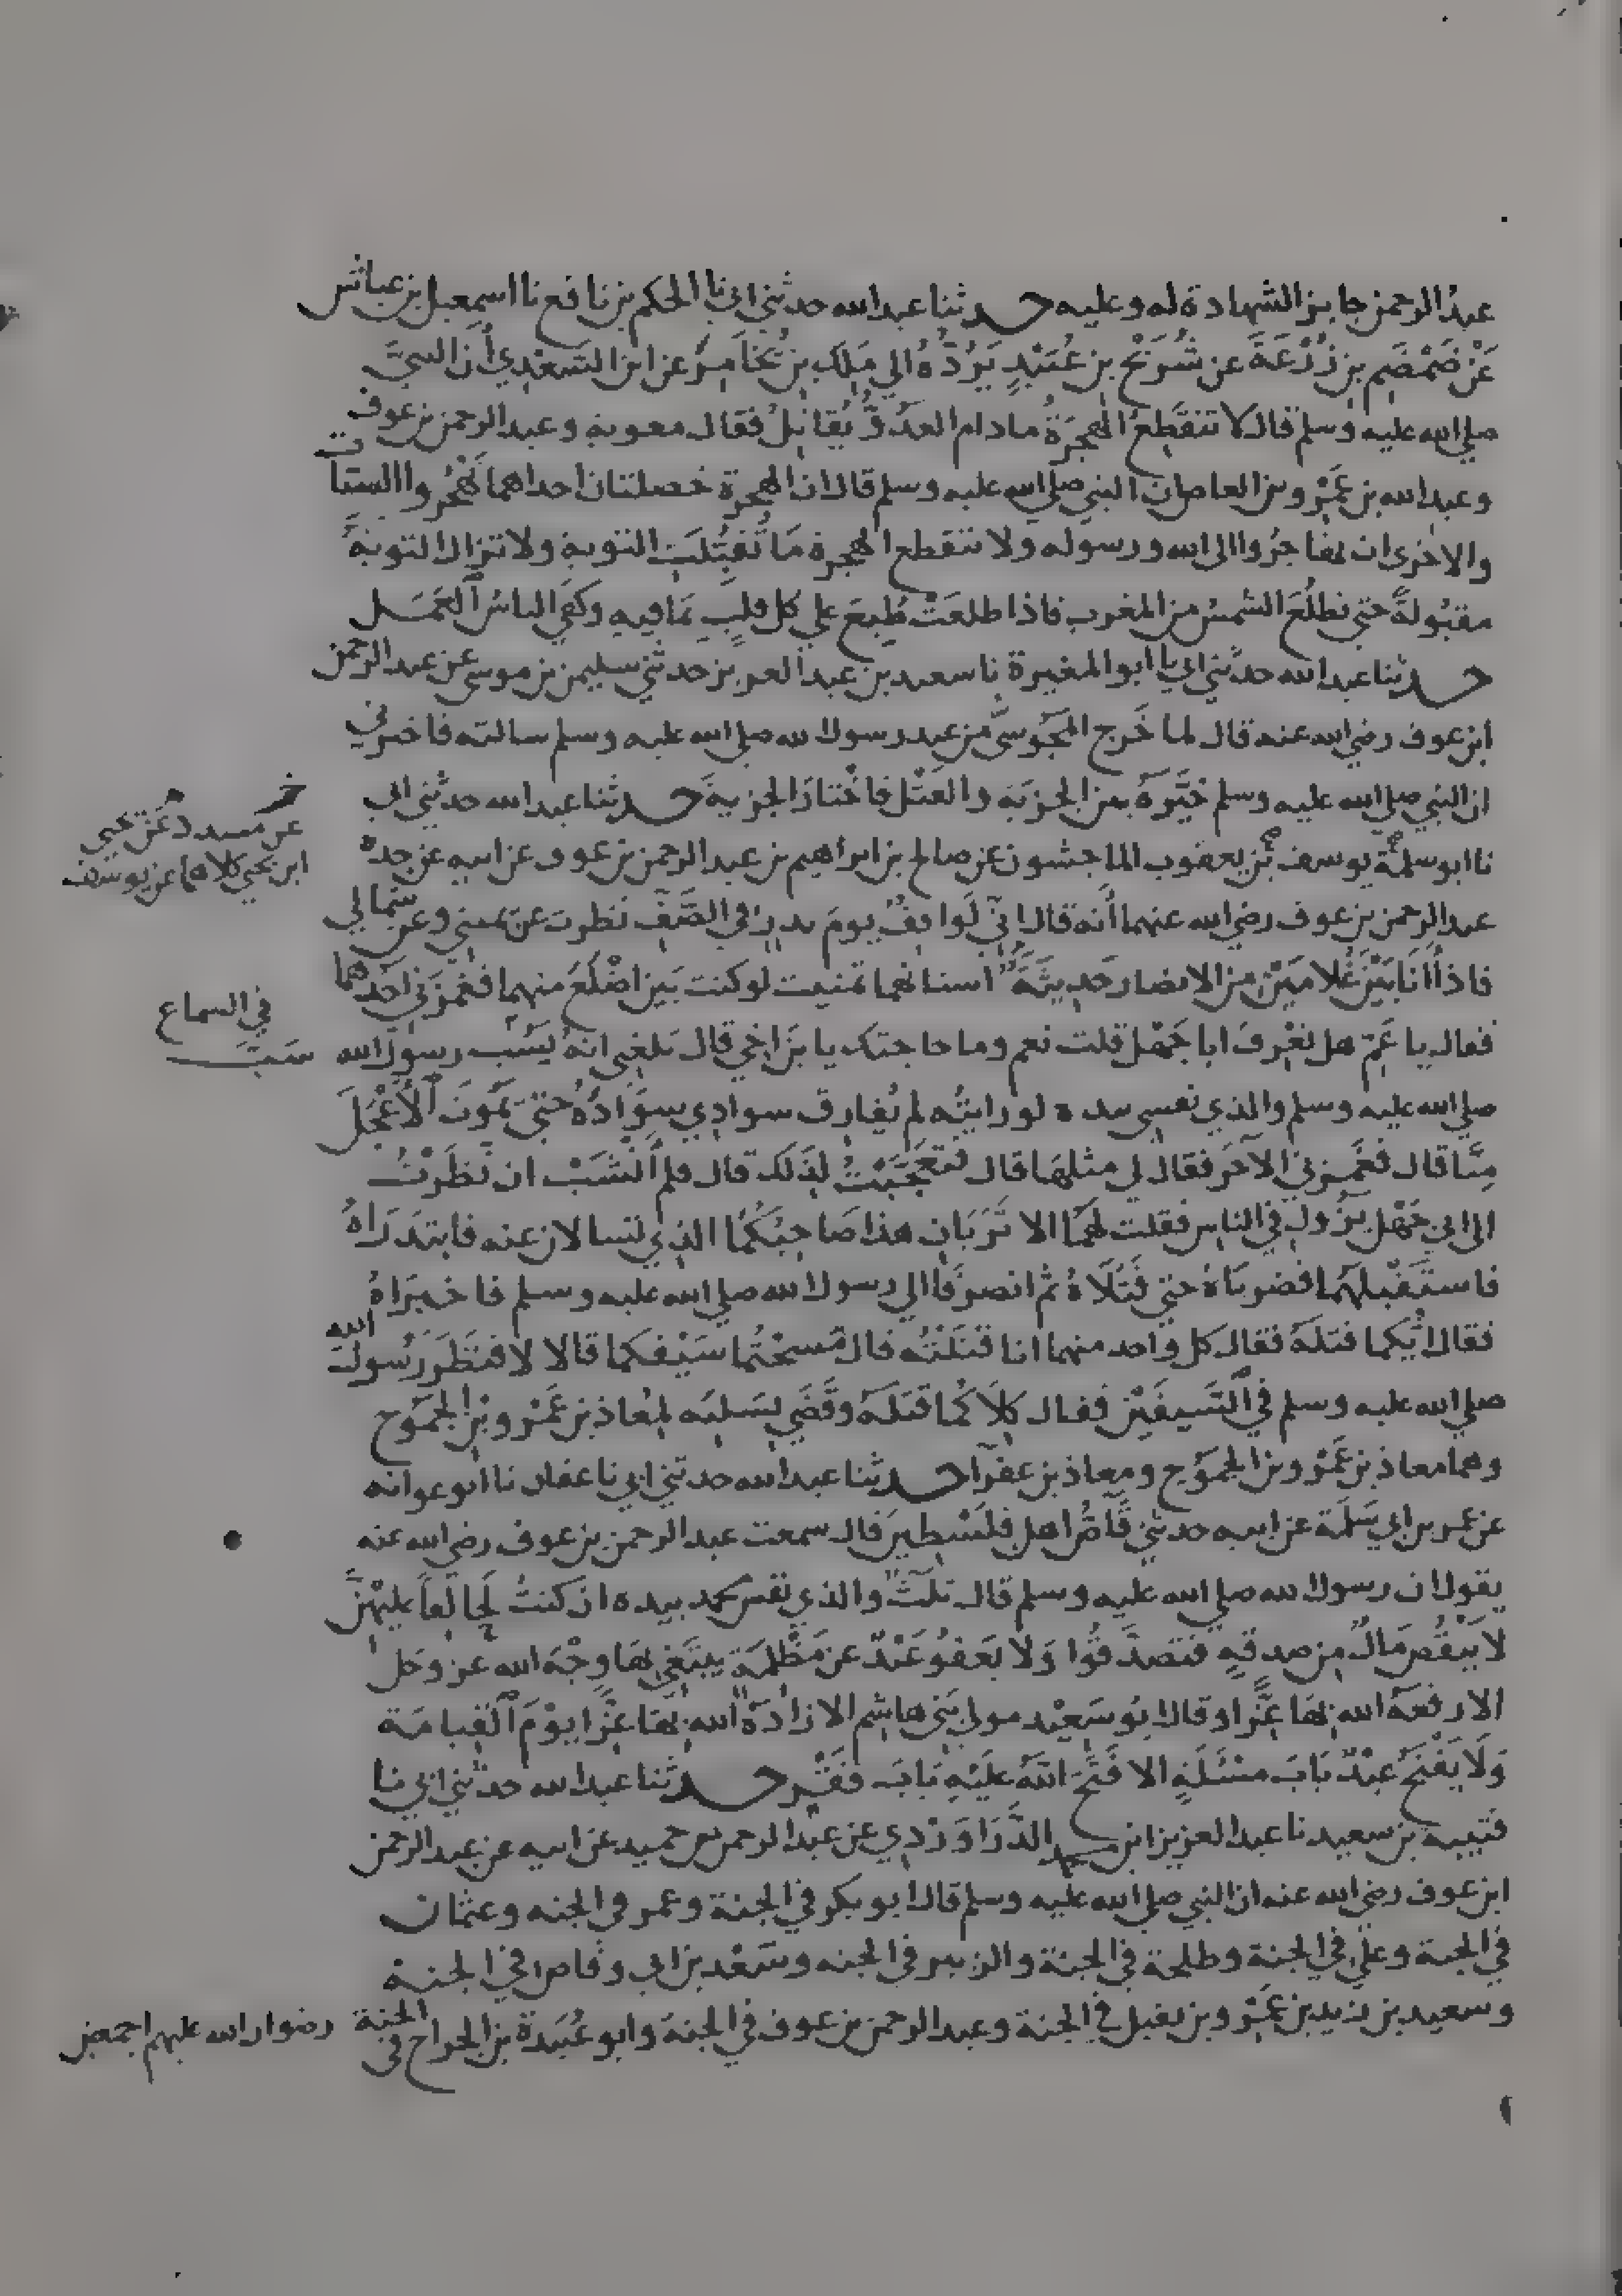 عبدُ الرحمن جايز الشهادة له وعليه حدثنا عبد الله حدثني ابي نا الحكم بن نافع نا اسمعيل بن عياش
عَنْ ضَمْضَمِ بنِ زُرْعَةَ عن شُرَيْح بن عُبَيْدٍ يَرُدُّهُ الي مَلِك بن يُخَامِرُ عن ابن السَّعْدِي أن النبيَّ
صلي الله عليه وسلم قال لا تنقَطِعُ الهجرَةُ مادام العَدُوُّ يُقَاتِلُ فقال معوية وعبد الرحمن بن عوف
وعبد الله بن عَمْرو بن العاص ان النبي صلي الله عليه وسلم قال ان الهجرة خصلتان احداهما تَهْجُر واالسيآت
والاخرى ان تهاجرُواالى الله ورسوله ولا تنقطع الهجرة مَا تُقُبِّلَتِ التوبة ولا تزال التوبةُ
مقبُولةً حتي تطلُعَ الشمسُ من المغرب فاذا طلعَتْ طُبِعَ علي كل قلبٍ بمَا فيهِ وكفِي الناسُ اَلعَمَـل
حدثنا عبد الله حدثني ابي نا ابو المغيرة نا سعيد بن عبد العزيز حدثني سليمن بن موسى عن عبد الرحمن
ابن عوف رضي الله عنه قال لما خَرج المَجُوسيُّ من عند رسول الله صلي الله عليه وسلم سالته فاخبرني
ان النبي صلي الله عليه وسلم خيَّرَهُ بين الجزية والقَتْل فاخْتارَ الجزيةَ حدثنا عبد الله حدثني ابي
خ
عن مسدد عن يحيى
ابن يحيي كلاهما عن يوسف
نا ابو سلمَة يوسف بن يعقوب الماجشون عن صالح بن ابراهيم بن عبد الرحمن بن عوف عن ابيه عن جده
عبد الرحمن بن عوف رضي الله عنهما أنه قال اِنّي لَوَاقِفٌ يومَ بدرٍ في الصَّفِّ نظرت عن يميني وعن شمالي
فاذا أنَا بَيْن غُلامَيْن من الانصار حَدِيثَةٌ اسنانهما تمنيت لو كنت بَين اضْلَعَ منهما فغمزني احَدُهما
في السماع
سَبَّ
فقال يا عَمّ هل تعْرِفُ ابا جَهْل قلت نعم وما حاجتك يا بنَ اخي قال بَلغني انهُ يَسُب رسول الله
صلي الله عليه وسلم والذي نفسي بيده لو رايتُه لم يُفارق سوادِي سَوَادُهُ حتي يَمُوتَ اَلأَعْجَلَ
مِنَّا قال فغَمزني الآخَر فقال لي مثلهَا قال فتعَجَّبْتُ لِذلك قال فلم أَنْشَبْ ان نظَرْتُ
الى ابي جَهْل يزُولُ في الناس فقلت لهُمَا الا تَرَيَانِ هذا صَاحِبُكُمَا الذي تسالان عنه فابتَدَرَاهُ
فاستَقْبلهُما فضربَاهُ حتي قَتَلاهُ ثمَّ انصرفَا الي رسول الله صلي الله عليه وسلم فاخبَرَاهُ
فقال ايُّكما قتلَهُ فقال كل واحد منهما انا قتَلْتُه قال مَسحْتُما سَيْفكما قالا لا فنَظَرَ رَسُول الله
صلي الله عليه وسلم في اَلسَّيفَيْن فقال كِلاَكُما قتَلَهُ وقَضَي بِسَلبِه لمُعَاذ بن عَمْرو بْن الجَمُوح
وهما معاذ بن عَمْرو بن الجمُوح ومعاذ بن عفرآ حدثنا عبد الله حدثني ابي نا عفان نا ابو عوانه
عن عمر بن ابي سَلَمة عن ابيه حدثني قاصُّ اهل فِلَسْطِينَ قال سمعت عبد الرحمن بن عوف رضي الله عنه
يقول ان رسول الله صلي الله عليه وسلم قال ثلثٌ والذي نفس محمد بيده ان كنتُ لَحَالفاً عليهنّ
لا يَنْقُصُ مَالٌ مِن صدقةٍ فتصدَّقُوا وَلا يَعفُو عَبْدٌ عن مَظْلِمَةٍ يبتَغي بها وجْهَ الله عز وجل
الا رفعَهُ الله بِهَا عِزًّا وقال ابُو سَعِيْد مولي بَني هاشِم الا زادَهُ اللهُ بها عِزًّا يومَ اَلقيامَة
وَلا يَفْتَحُ عبْدٌ بَابَ مسْئَلةٍ الا فَتَحَ اللهُ عَلَيْهِ بَابَ فقْرٍ حدثنا عبد الله حدثني ابي نا
قتيبة بن سعيد نا عبد العزيز ابن محمد الدَّرَاوَرْدِي عن عبد الرحمن بن حميد عن ابيه عن عبد الرحمن
ابن عوف رضي الله عنه ان النبي صلي الله عليه وسلم قال ابو بكر في الجنة وعمر في الجنه وعثمان
في الجنة وعلي في الجنة وطلحة في الجنة والزبير في الجنه وسَعْد بن ابي وقاص في الجنـة
وسعيد بن زيد بن عَمْرو بن نفيل في الجنة وعبد الرحمن بن عوف في الجنة وابو عُبَيدة بن الجراح في الجنة رضوان الله عليهم اجمعين